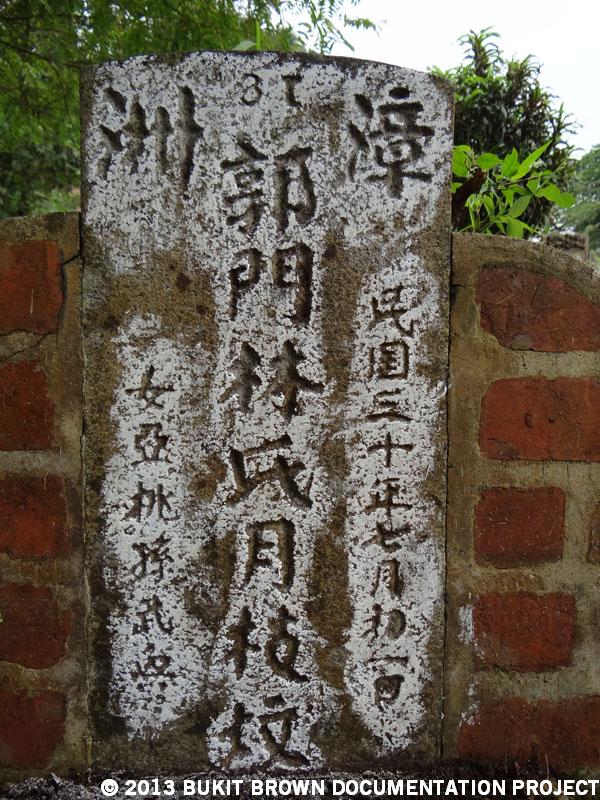 漳洲
民國三十年七月初一日
郭門林氏月枝坟
女亞桃孫武
© 2013 BUKIT BROWN DOCUMENTATION PROJECT